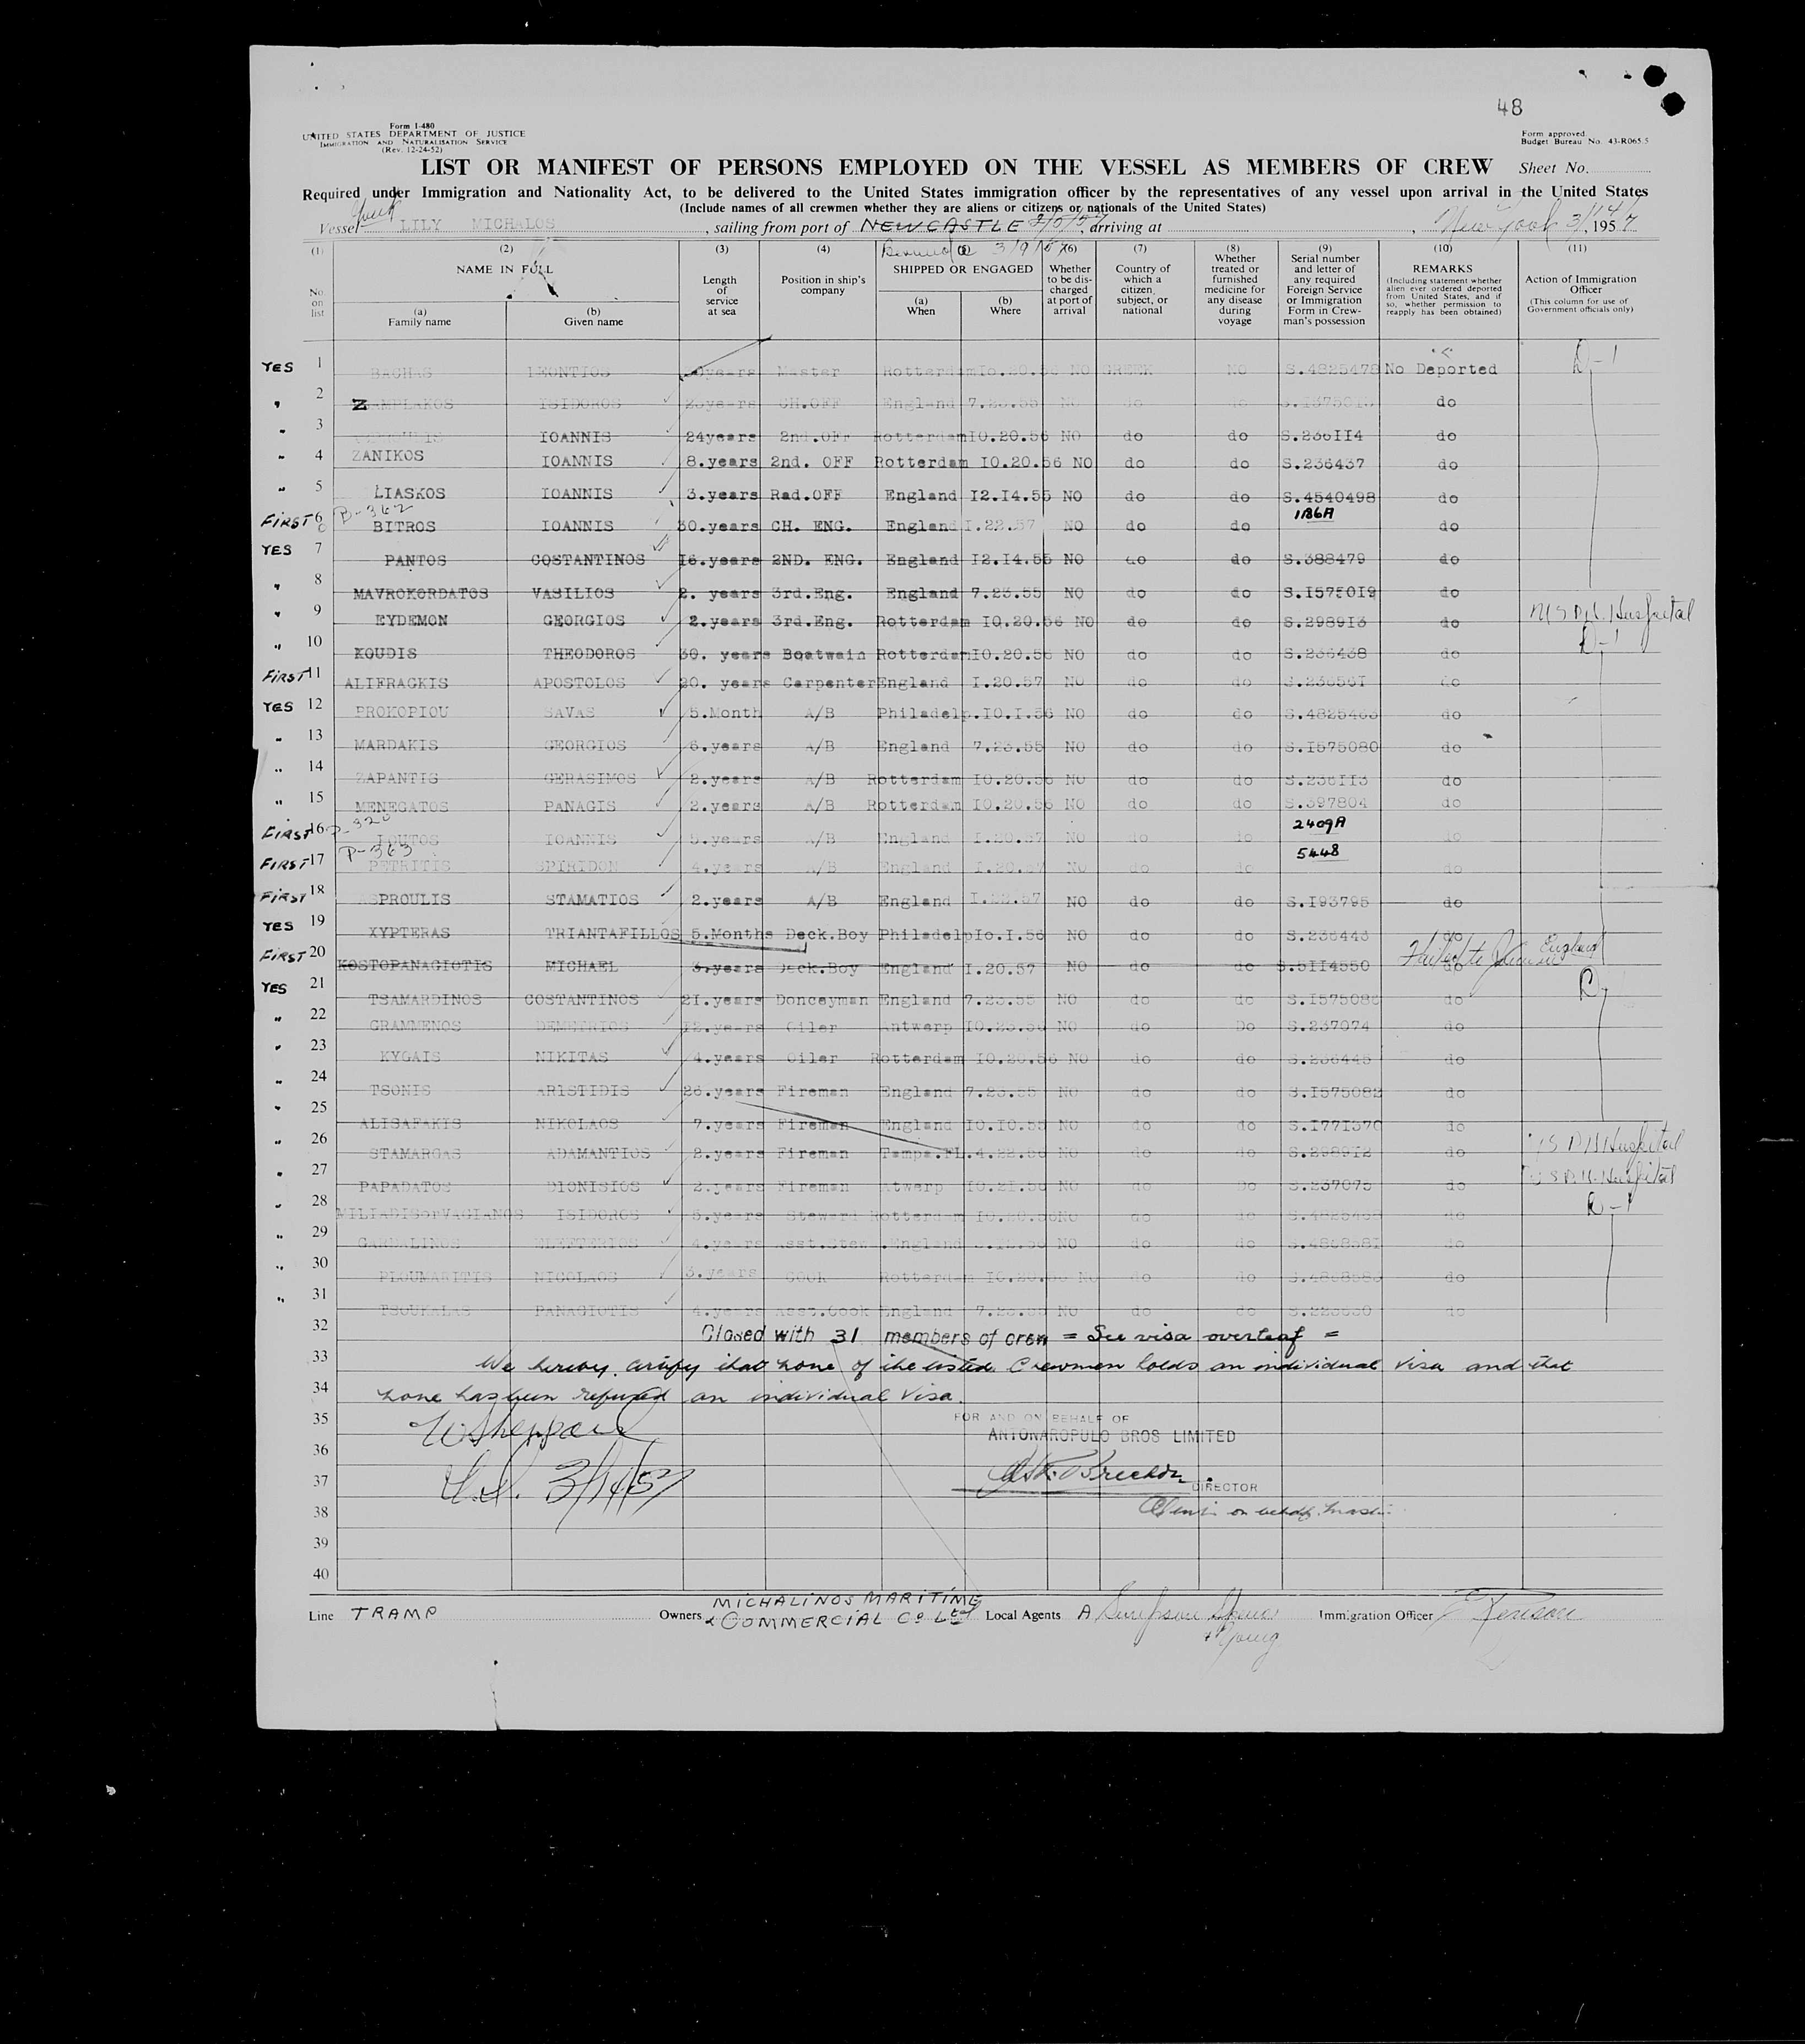 48
Form I-480
UNITED STATES DEPARTMENT OF JUSTICE
IMMIGRATION AND NATURALISATION SERVICE
(Rev. 12-24-52)
Form approved.
Budget Bureau No. 43-R065.5
LIST OR MANIFEST OF PERSONS EMPLOYED ON THE VESSEL AS MEMBERS OF CREW Sheet No.
Required under Immigration and Nationality Act, to be delivered to the United States immigration officer by the representatives of any vessel upon arrival in the United States
(Include names of all crewmen whether they are aliens or citizens or nationals of the United States)
Greek
Vessel LILY MICHALOS, sailing from port of NEWCASTLE, arriving at New York 3/14, 1957
Bermuda 3/9/57
(1) (2) (3) (4) (5) (6) (7) (8) (9) (10) (11)
No. on list
NAME IN FULL
(a) Family name
(b) Given name
Length of service at sea
Position in ship's company
SHIPPED OR ENGAGED
(a) When
(b) Where
Whether to be discharged at port of arrival
Country of which a citizen, subject, or national
Whether treated or furnished medicine for any disease during voyage
Serial number and letter of any required Foreign Service or Immigration Form in Crewman's possession
REMARKS
(Including statement whether alien ever ordered deported from United States, and if so, whether permission to reapply has been obtained)
Action of Immigration Officer
(This column for use of Government officials only)
YES 1 BACHAS LEONTIOS years Master Rotterdam 10.20.56 NO GREEK NO S.4825478 No Deported D-1
" 2 ZAMPLAKOS ISIDOROS years CH.OFF England 7.23.55 NO do do do
" 3 IOANNIS 24years 2nd.OFF Rotterdam I0.20.56 NO do do S.236II4 do
" 4 ZANIKOS IOANNIS 8.years 2nd. OFF Rotterdam I0.20.56 NO do do S.236437 do
" 5 LIASKOS IOANNIS 3.years Rad.OFF England I2.I4.55 NO do do S.4540498 do
FIRST 6 B-362 BITROS IOANNIS 30.years CH. ENG. England I.22.57 NO do do 186A do
YES 7 PANTOS COSTANTINOS I6.years 2ND. ENG. England I2.I4.55 NO do do S.388479 do
" 8 MAVROKORDATOS VASILIOS 2. years 3rd.Eng. England 7.23.55 NO do do S.I575019 do
" 9 EYDEMON GEORGIOS 2.years 3rd.Eng. Rotterdam I0.20.56 NO do do S.2989I3 do USPH. Hospital
" 10 KOUDIS THEODOROS 30. years Boatwain Rotterdam I0.20.56 NO do do S.236438 do D-1
FIRST 11 ALIFRAGKIS APOSTOLOS 20. years Carpenter England I.20.57 NO do do S.23656I do
YES 12 PROKOPIOU SAVAS 5.Month A/B Philadelp.I0.I.56 NO do do S.4825463 do
" 13 MARDAKIS GEORGIOS 6.years A/B England 7.23.55 NO do do S.I575080 do
" 14 ZAPANTIS GERASIMOS 2.years A/B Rotterdam I0.20.56 NO do do S.236II3 do
" 15 MENEGATOS PANAGIS 2.years A/B Rotterdam I0.20.56 NO do do S.397804 do
FIRST 16 IOANNIS 5.years A/B England I.20.57 NO do do 2409A do
FIRST 17 P-363 PETRITIS SPIRIDON 4.years A/B England I.20.57 NO do do 5448 do
FIRST 18 ASPROULIS STAMATIOS 2.years A/B England I.22.57 NO do do S.I93795 do
YES 19 XYPTERAS TRIANTAFILLOS 5.Months Deck.Boy Philadelp Io.I.56 NO do do S.236443 do
FIRST 20 KOSTOPANAGIOTIS MICHAEL 3.years Deck.Boy England I.20.57 NO do do S.5II4550 do Failed to Join in England
YES 21 TSAMARDINOS COSTANTINOS 2I.years Donceyman England 7.23.55 NO do do S.I575086 do D-1
" 22 GRAMMENOS DEMETRIOS I2.years Oiler Antwerp I0.23.56 NO do Do S.237074 do
" 23 KYGAIS NIKITAS 4.years Oiler Rotterdam I0.20.56 NO do do S.236445 do
" 24 TSONIS ARISTIDIS 26.years Fireman England 7.23.55 NO do do S.I575082 do
" 25 ALISAFAKIS NIKOLAOS 7.years Fireman England I0.I0.55 NO do do S.I77I370 do
" 26 STAMARGAS ADAMANTIOS 2.years Fireman Tampa.FL.4.22.56 NO do do S.2989I2 do USPH Hospital
" 27 PAPADATOS DIONISIOS 2.years Fireman Atwerp I0.2I.56 NO do Do S.237075 do USPH. Hospital
" 28 MILIADISorVAGIANOS ISIDOROS 5.years Steward Rotterdam I0.20.56NO do do do D-1
" 29 ELEFTERIOS 4.years Asst.Stew.England NO do do S.486858I do
" 30 PLOUMARITIS NICOLAOS 3.years COOK Rotterdam I0.20.56 NO do do do
" 31 TSOUKALAS PANAGIOTIS 4.years Asst.Cook England 7.23.55 NO do do do
32 Closed with 31 members of crew = See visa overleaf =
33 We hereby certify that none of the listed Crewmen holds an individual Visa and that
34 none has been refused an individual Visa.
35 FOR AND ON BEHALF OF
36 ANTONAROPULO BROS LIMITED
37 3/14/57 DIRECTOR
38 on behalf master
39
40
Line TRAMP Owners MICHALINOS MARITIME & COMMERCIAL Co Ltd Local Agents Simpson Spence & Young Immigration Officer